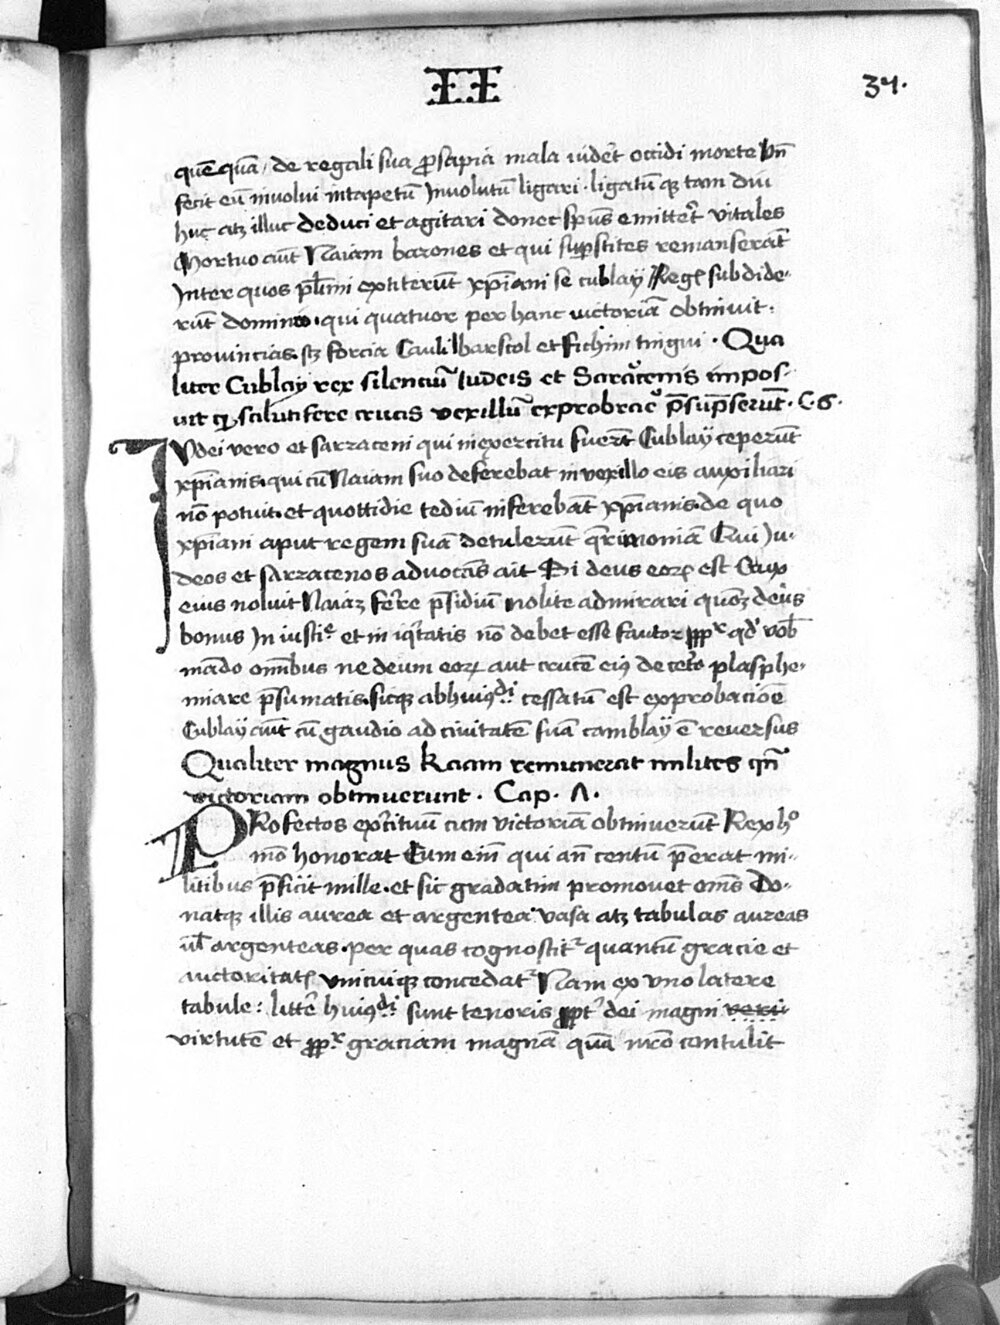 II 34.
quēquā, de regali sua ꝓsapia mala uidet̄ occidi morte Vn̄
fecit eū inuolui in tapetū Inuolutū ligari. ligatū qꝫ tam diu
huc atꝫ illuc deduci et agitari donec sp̄us emitter̄t vitales
Mortuo aūt Naiam barones et qui sup̄stites remanserāt
Inter quos pl̄imi extiterūt xp̄iani se cublay Regꝭ subdide-
rūt dominio. qui quatuor per hanc victoriā obtinuit.
prouincias. sꝫ forcia Cauli barscol et fichin tingui. Qua
liter Cublay rex silenciū Iudeis et Saracenis impos-
uit qͥ salutifere crucis vexillū exprobraē p̄sūpserūt. C. 6.
Iudei vero et sarzaceni qui in exercitu fuer̄t Cublay ceperūt
xp̄ianis. qui cū Naiam suo deferebat in vexillo eis auxiliari
nō potuit. et quottidie tediū inferebāt xp̄ianis. de quo
xp̄iani aput regem suā detulerūt qͥrimoniā Qui Iu-
deos et sarzacenos aduocās ait Si deus eoꝝ est Crux
eius noluit Naiaꝫ fer̄re p̄sidiū nolite admirari quoꝫ deus
bonus Iniustiᵉ et iniqͥtatis nō debet esse fautor ꝓpꝑʳ qd̓ vob̄
mādo om̄ibus ne deum eoꝝ aut crucē eiꝰ de ceto plasphe-
miare p̄sumatis. sicqꝫ ab huiꝰdi cessatū est exprobacioē
Cublay aūt cū gaudio ad ciuitatē suā camblay ē reuersus
Qualiter magnus Kaam remunerat milites qn̄
victoriam obtinuerunt. Cap. Λ.
PRofectos exͥcituū cum victoriā obtinuerūt Rex hͦ
mō honorat Eum ein̄ qui an̄ centū p̄erat mi-
litibus p̄ficit mille. et sic gradatim promouet om̄s Do-
natqꝫ illis aurea et argentea. vasa atꝫ tabulas aureas
ul̄ argenteas. per quas cognoscitᷣ quantū gracie et
auctoritatꝭ vnicuiqꝫ concedatᷣ Nam ex vno latere
tabule: litter̄ huiꝰdi sunt tenoris ꝓptͬ dei magni veri
virtutē et ꝓpꝑʳ graciam magnā quā nr̄o contulit